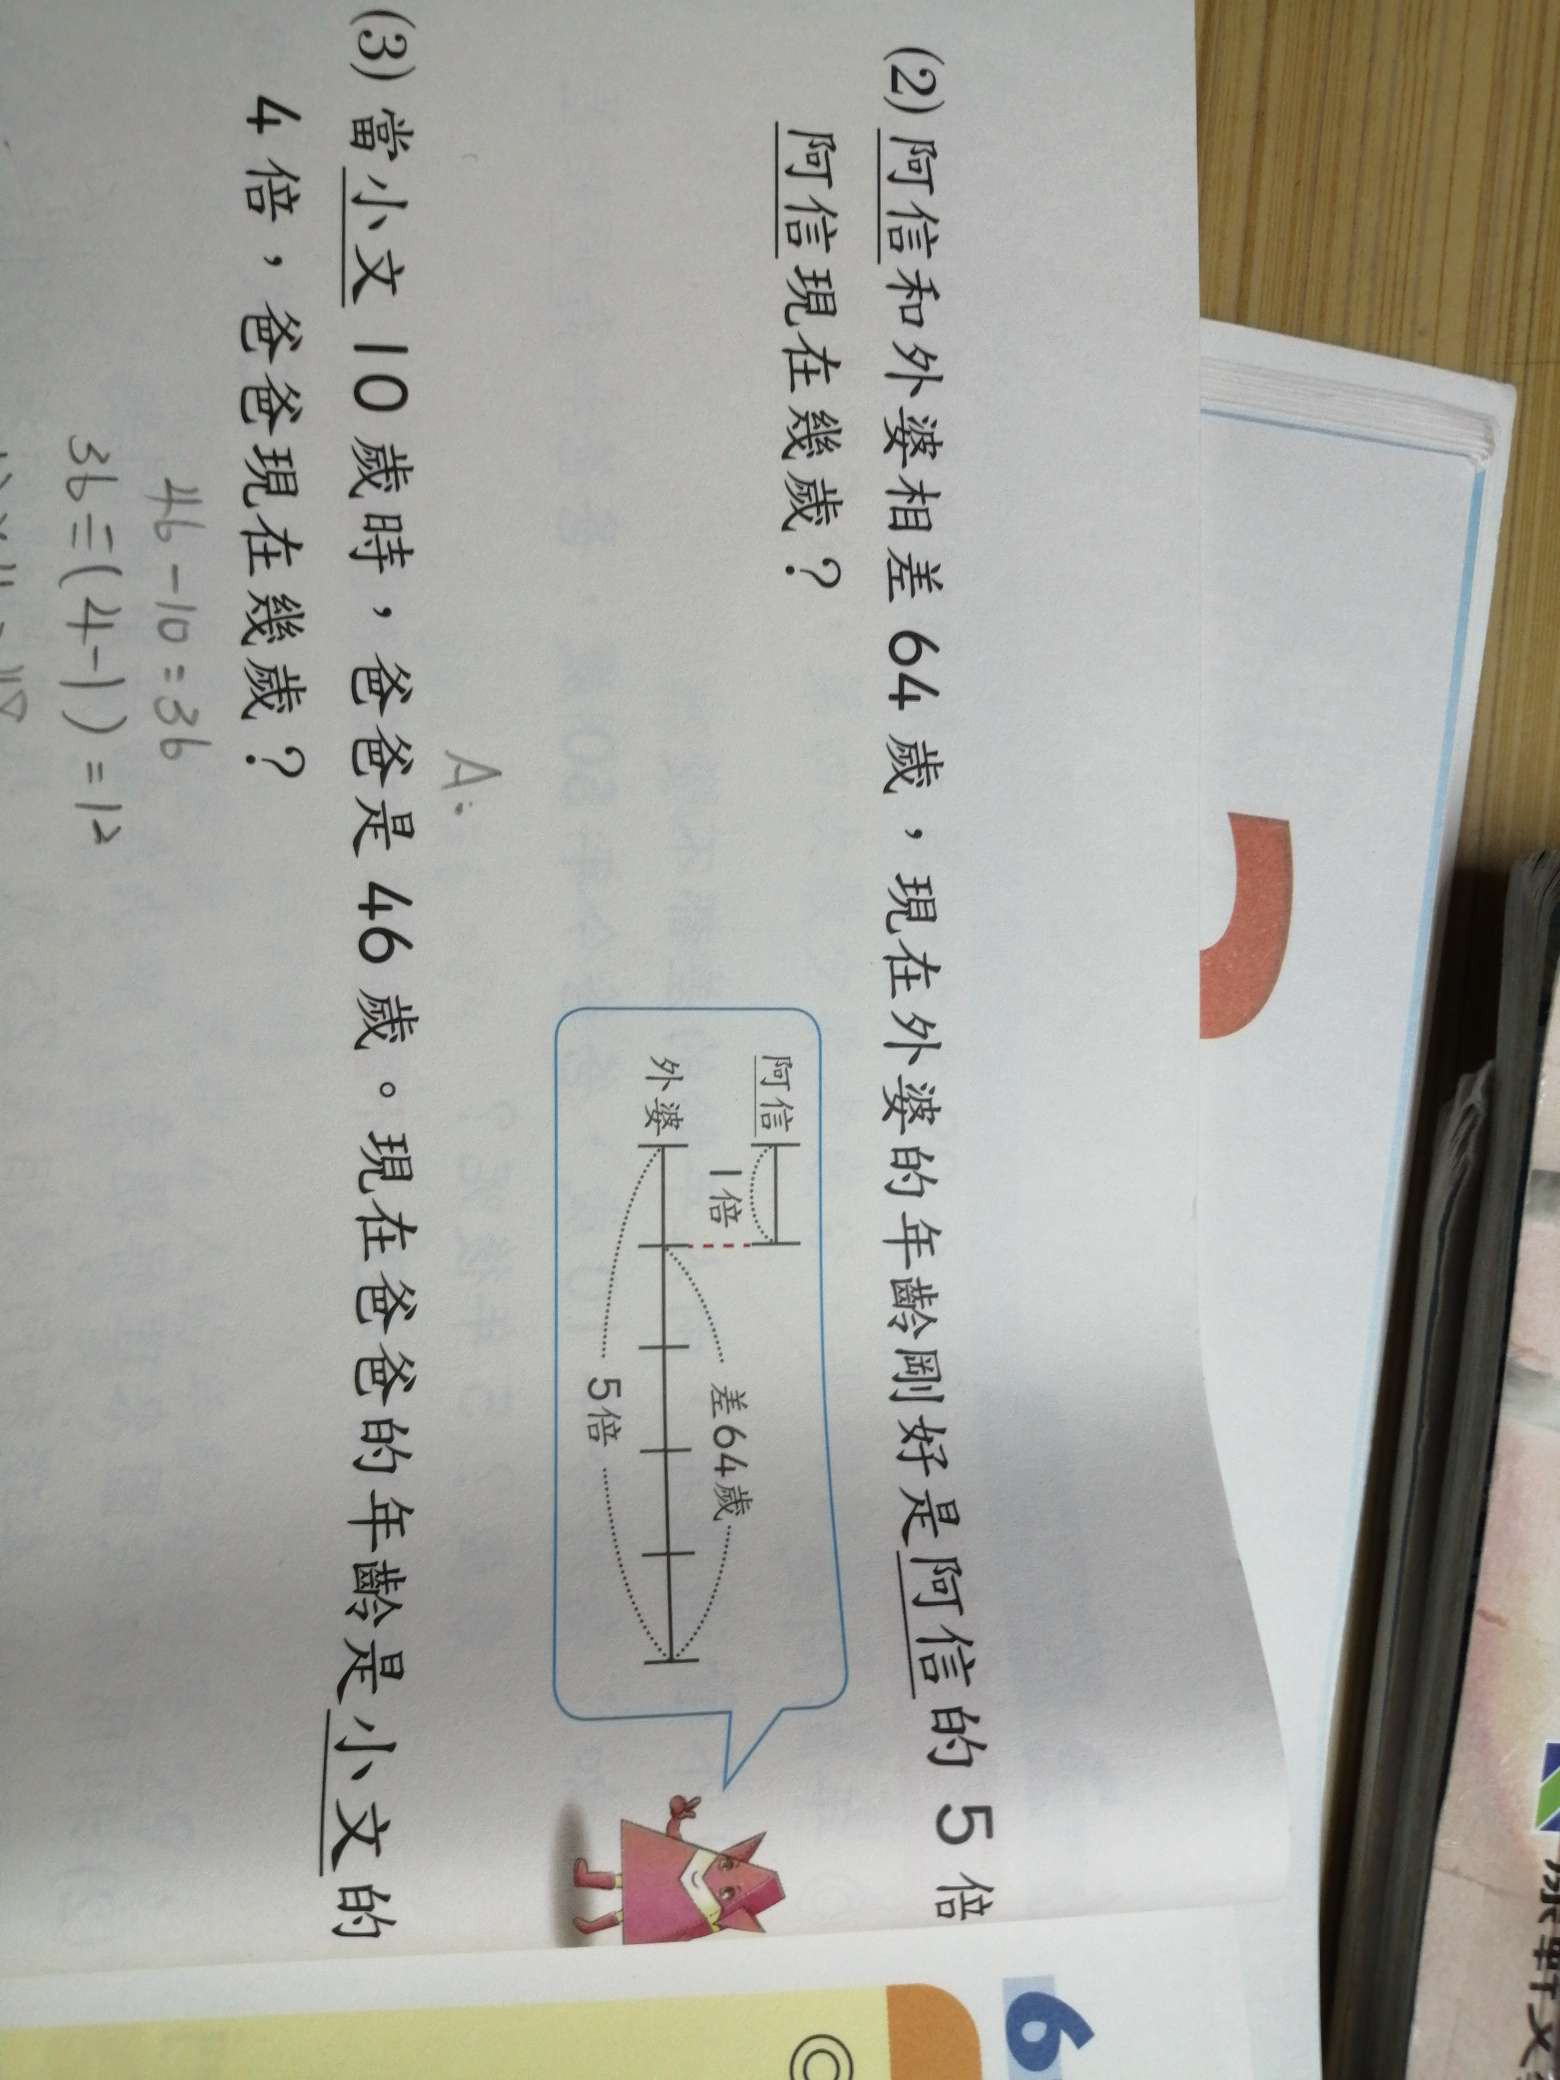 (2) 阿信和外婆相差 64 歲，現在外婆的年齡剛好是阿信的 5 倍
阿信現在幾歲？
阿信
1倍
差64歲
外婆
5倍
A:
(3) 當小文 10 歲時，爸爸是 46 歲。現在爸爸的年齡是小文的
4 倍，爸爸現在幾歲？
46-10=36
36÷(4-1)=12
6